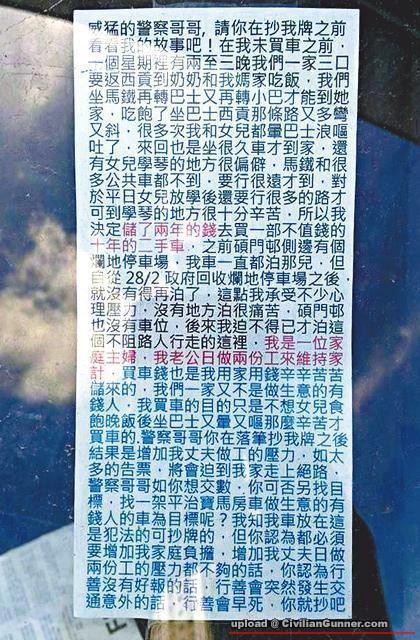 威猛的警察哥哥, 請你在抄我牌之前
看看我的故事吧！在我未買車之前,
一個星期裡有兩至三晚我們一家三口
要返西貢到奶奶和我媽家吃飯, 我們
坐馬鐵再轉巴士又再轉小巴才能到她
家, 吃飽了坐巴士西貢那條路又多彎
又斜, 很多次我和女兒都暈巴士浪嘔
吐了, 來回也是坐很久車才到家, 還
有女兒學琴的地方很偏僻, 馬鐵和很
多公共車都不到, 要行很遠才到, 對
於平日女兒放學後還要行很多的路才
可到學琴的地方很十分辛苦, 所以我
決定儲了兩年的錢去買一部不值錢的
十年的二手車, 之前碩門邨側邊有個
爛地停車場, 我車一直都泊那兒, 但
自從 28/2 政府回收爛地停車場之後
就沒有得再泊了, 這點我承受不少心
理壓力, 沒有地方泊很痛苦, 碩門邨
也沒有車位, 後來我迫不得已才泊這
個不阻路人行走的這裡, 我是一位家
庭主婦, 我老公日做兩份工來維持家
計, 買車錢也是我用家用錢辛辛苦苦
儲來的, 我們一家又不是做生意的有
錢人, 我買車的目的只是不想女兒食
飽晚飯後坐巴士又暈又嘔那麼辛苦才
買車的.警察哥哥你在落筆抄我牌之後
結果是增加我丈夫做工的壓力, 如太
多的告票, 將會迫到我家走上絕路,
警察哥哥如你想交數, 你可否另找目
標, 找一架平治寶馬房車做生意的有
錢人的車為目標呢？我知我車放在這
是犯法的可抄牌的, 但你認為都必須
要增加我家庭負擔, 增加我丈夫日做
兩份工的壓力都不夠的話, 你認為行
善沒有好報的話, 行善會突然發生交
通意外的話, 行善會早死, 你就抄吧
upload @ CivilianGunner.com